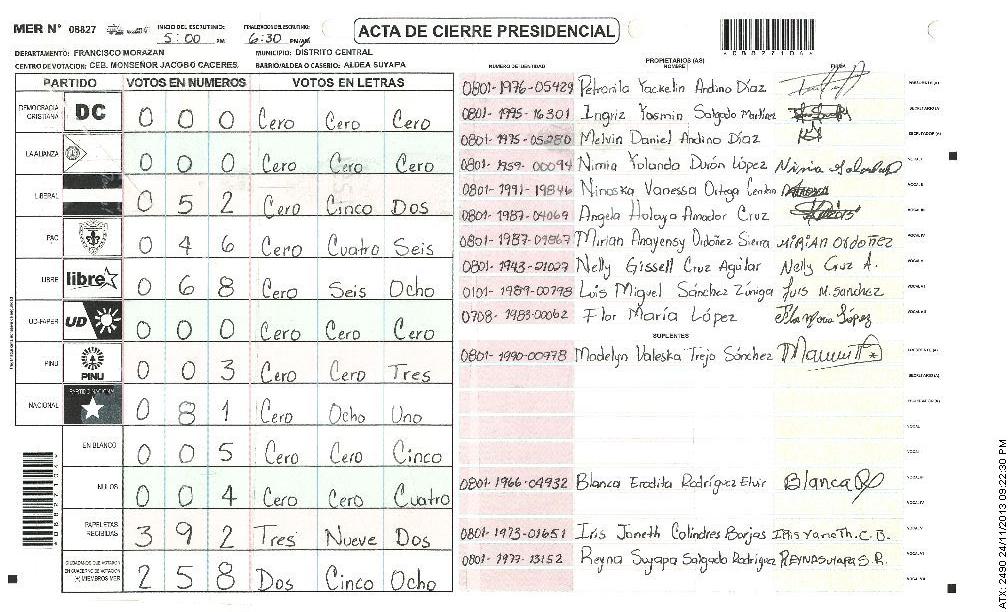 MER N° 08827 INICIO DEL ESCRUTINIO: 5:00 PM FINALIZACION DEL ESCRUTINIO: 6:30 PM/AM ACTA DE CIERRE PRESIDENCIAL
DEPARTAMENTO: FRANCISCO MORAZAN MUNICIPIO: DISTRITO CENTRAL
CENTRO DE VOTACION: CEB. MONSEÑOR JACOBO CACERES, BARRIO/ALDEA O CASERIO: ALDEA SUYAPA
PARTIDO VOTOS EN NUMEROS VOTOS EN LETRAS
DEMOCRACIA CRISTIANA DC 0 0 0 Cero Cero Cero
LA ALIANZA 0 0 0 Cero Cero Cero
LIBERAL 0 5 2 Cero Cinco Dos
PAC 0 4 6 Cero Cuatro Seis
LIBRE libre 0 6 8 Cero Seis Ocho
UD-FAPER UD 0 0 0 Cero Cero Cero
PINU PINU 0 0 3 Cero Cero Tres
NACIONAL PARTIDO NACIONAL 0 8 1 Cero Ocho Uno
EN BLANCO 0 0 5 Cero Cero Cinco
NULOS 0 0 4 Cero Cero Cuatro
PAPELETAS RECIBIDAS 3 9 2 Tres Nueve Dos
CIUDADANOS QUE VOTARON EN CUADERNO DE VOTACION (+) MIEMBROS MER 2 5 8 Dos Cinco Ocho
PROPIETARIOS (AS)
NUMERO DE IDENTIDAD NOMBRE FIRMA
0801-1976-05429 Petronila Yackelin Andino Díaz PRESIDENTE (A)
0801-1995-16301 Ingriz Yosmin Salgado Martinez SECRETARIO/A
0801-1975-05280 Melvin Daniel Andino Díaz ESCRUTADOR (A)
0801-1959-00094 Nimia Yolanda Durón López
0801-1991-19846 Ninoska Vanessa Ortega
0801-1987-04069 Angela Hulaya Amador Cruz
0801-1987-09867 Mirian Anayensy Ordoñez Sierra MIRIAN Ordoñez
0801-1943-21027 Nelly Gissell Cruz Aguilar Nelly Cruz A.
0101-1989-00798 Luis Miguel Sánchez Zúniga Luis M. Sanchez
0708-1983-00062 Flor María López Flor Maria López
SUPLENTES
0801-1990-00978 Madelyn Valeska Trejo Sánchez
0801-1966-04932 Blanca Eradita Rodríguez Elvir Blanca R
0801-1973-01651 Iris Janeth Colindres Borjas Iris Yaneth. C. B.
0801-1977-13152 Reyna Suyapa Salgado Rodríguez REYNA SUYAPA S. R.
ATX: 2490 24/11/2013 09:22:30 PM